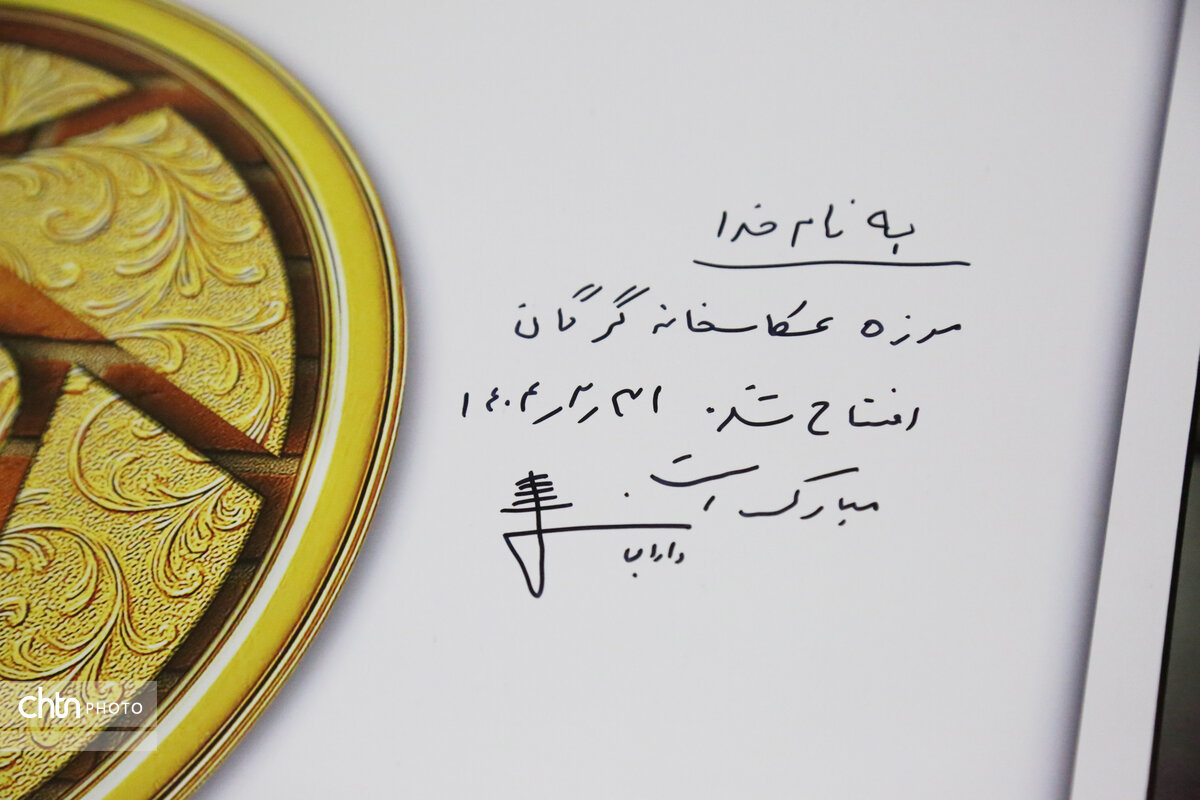 به نام خدا
موزه عکاسخانه گرگان
افتتاح شد. ۱۴۰۴٫۲٫۳۱
مبارک است.
داراب
chtn PHOTO